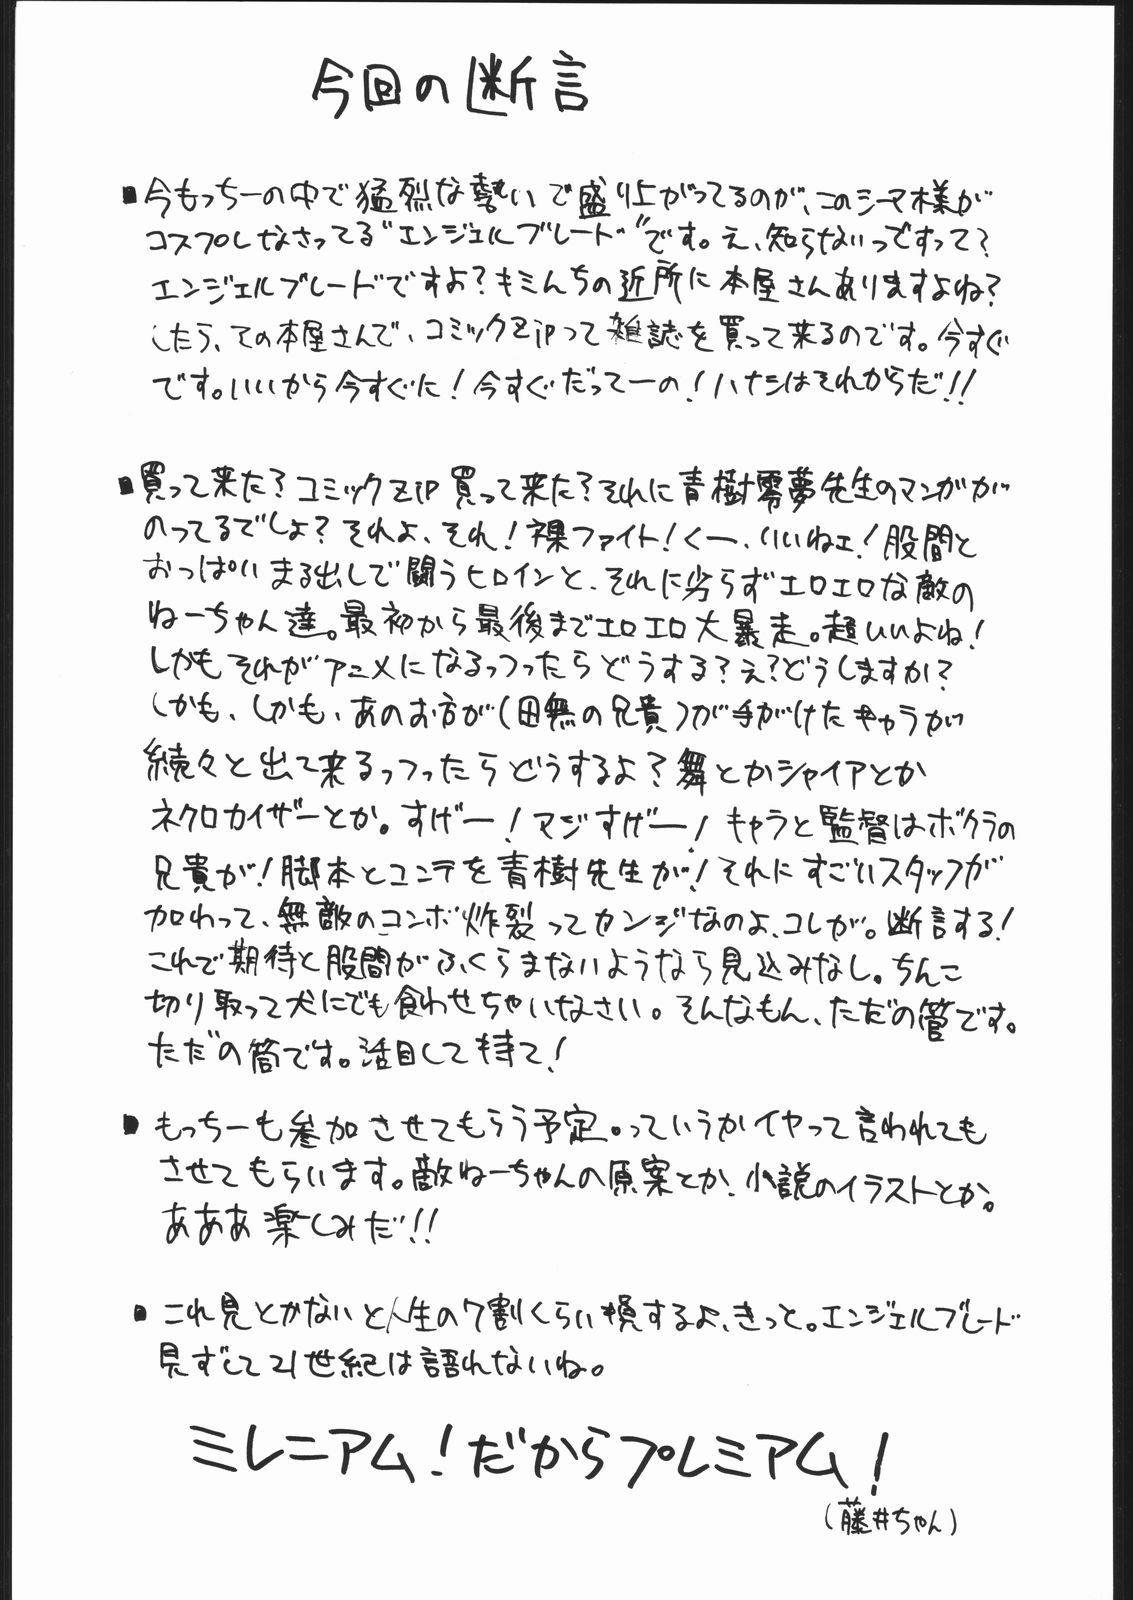 今回の断言
■今もっちーの中で猛烈な勢いで盛り上がってるのが、このシーマ様が
コスプレしなさってる“エンジェルブレード”です。え、知らないっですって？
エンジェルブレードですよ？キミんちの近所に本屋さんありますよね？
したら、その本屋さんで、コミックZipって雑誌を買って来るのです。今すぐ
です。いいから今すぐに！今すぐだってーの！ハナシはそれからだ！！
■買って来た？コミックZip買って来た？それに青樹零夢先生のマンガが
のってるでしょ？それよ、それ！裸ファイト！くー、いいねェ！股間と
おっぱいまる出しで闘うヒロインと、それに劣らずエロエロな敵の
ねーちゃん達。最初から最後までエロエロ大暴走。超いいよね！
しかもそれがアニメになるっつったらどうする？え？どうしますか？
しかも、しかも、あのお方が(田無の兄貴)が手がけたキャラが
続々と出て来るっつったらどうするよ？舞とかシャイアとか
ネクロカイザーとか。すげー！マジすげー！キャラと監督はボクラの
兄貴が！脚本とコンテを青樹先生が！それにすごいスタッフが
加わって、無敵のコンボ炸裂ってカンジなのよ、コレが。断言する！
これで期待と股間がふくらまないようなら見込みなし。ちんこ
切り取って犬にでも食わせちゃいなさい。そんなもん、ただの管です。
ただの筒です。活目して待て！
■もっちーも参加させてもらう予定。っていうかイヤって言われても
させてもらいます。敵ねーちゃんの原案とか、小説のイラストとか。
あああ楽しみだ！！
■これ見とかないと人生の7割くらい損するよ、きっと。エンジェルブレード
見ずして21世紀は語れないね。
ミレニアム！だからプレミアム！
(藤井ちゃん)